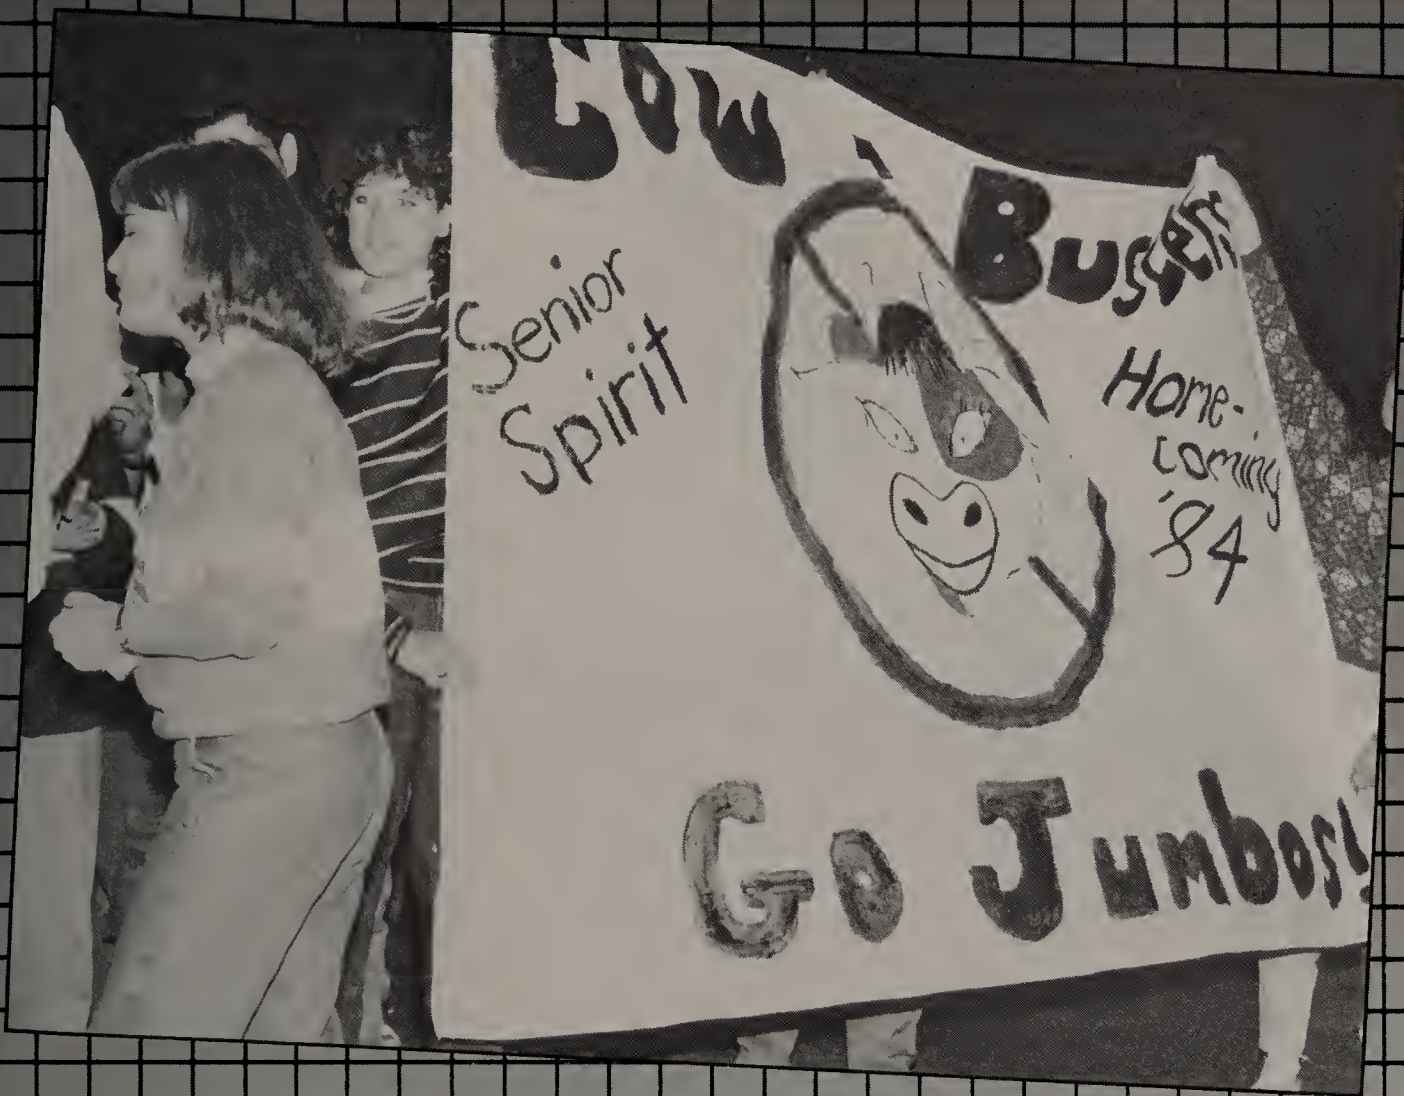 Cow - Busters
Senior
Spirit
Home-
coming
'84
Go Jumbos!